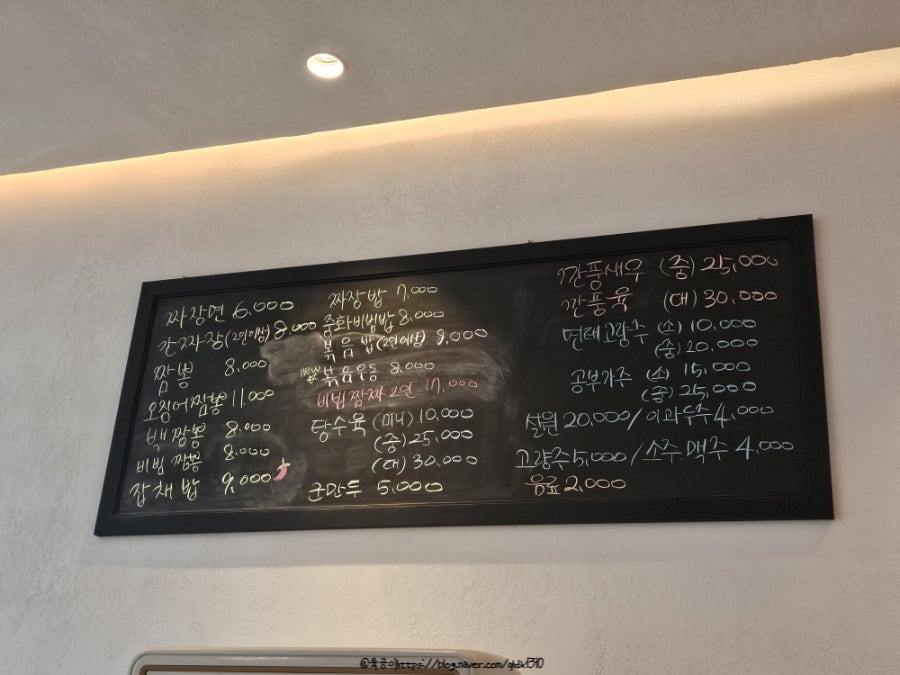 짜장면 6,000
간짜장 (2인이상) 8,000
짬뽕 8,000
오징어짬뽕 11,000
백짬뽕 8,000
비빔짬뽕 8,000
잡채밥 9,000
짜장밥 7,000
중화비빔밥 8,000
볶음밥 (2인이상) 9,000
new 볶음우동 8,000
비빔짬짜 2인 17,000
탕수육 (미니) 10,000
(중) 25,000
(대) 30,000
군만두 5,000
깐풍새우 (중) 25,000
깐풍육 (대) 30,000
연태고량주 (소) 10,000
(중) 20,000
공부가주 (소) 15,000
(중) 25,000
설원 20,000 / 이과두주 4,000
고량주 5,000 / 소주.맥주 4,000
음료 2,000